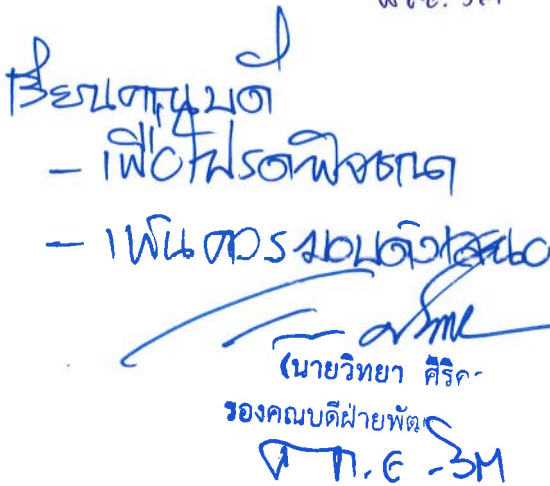 เรียนคณบดี
- เพื่อโปรดพิจารณา
- เห็นควรมอบดังเสนอ
(นายวิทยา ศิริ
รองคณบดีฝ่ายพัฒ